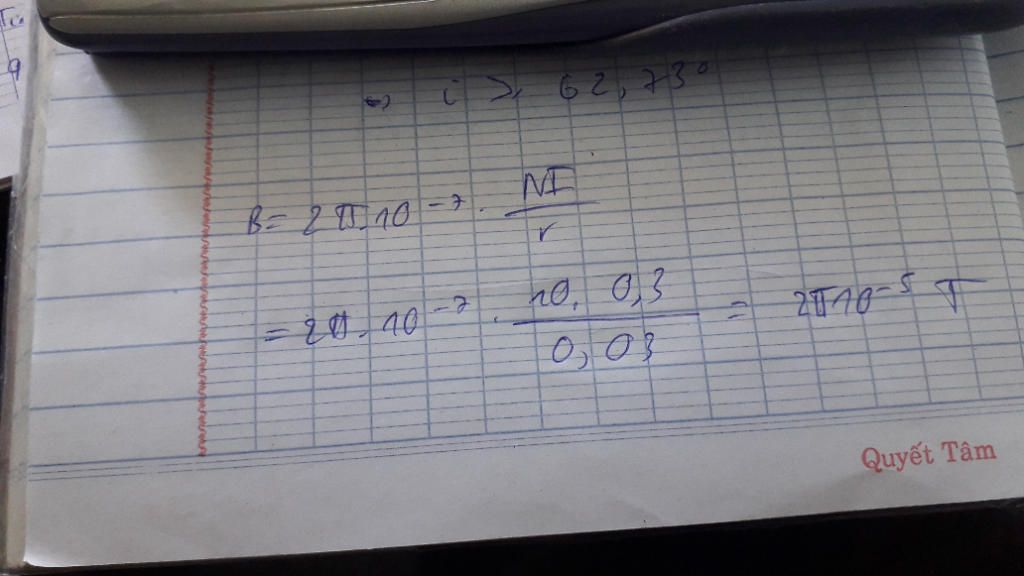 ⇔ i ≥ 62,73°
B = 2π.10⁻⁷ . NI/r
= 2π.10⁻⁷ . 10. 0,3/0,03 = 2π10⁻⁵ T
Quyết Tâm